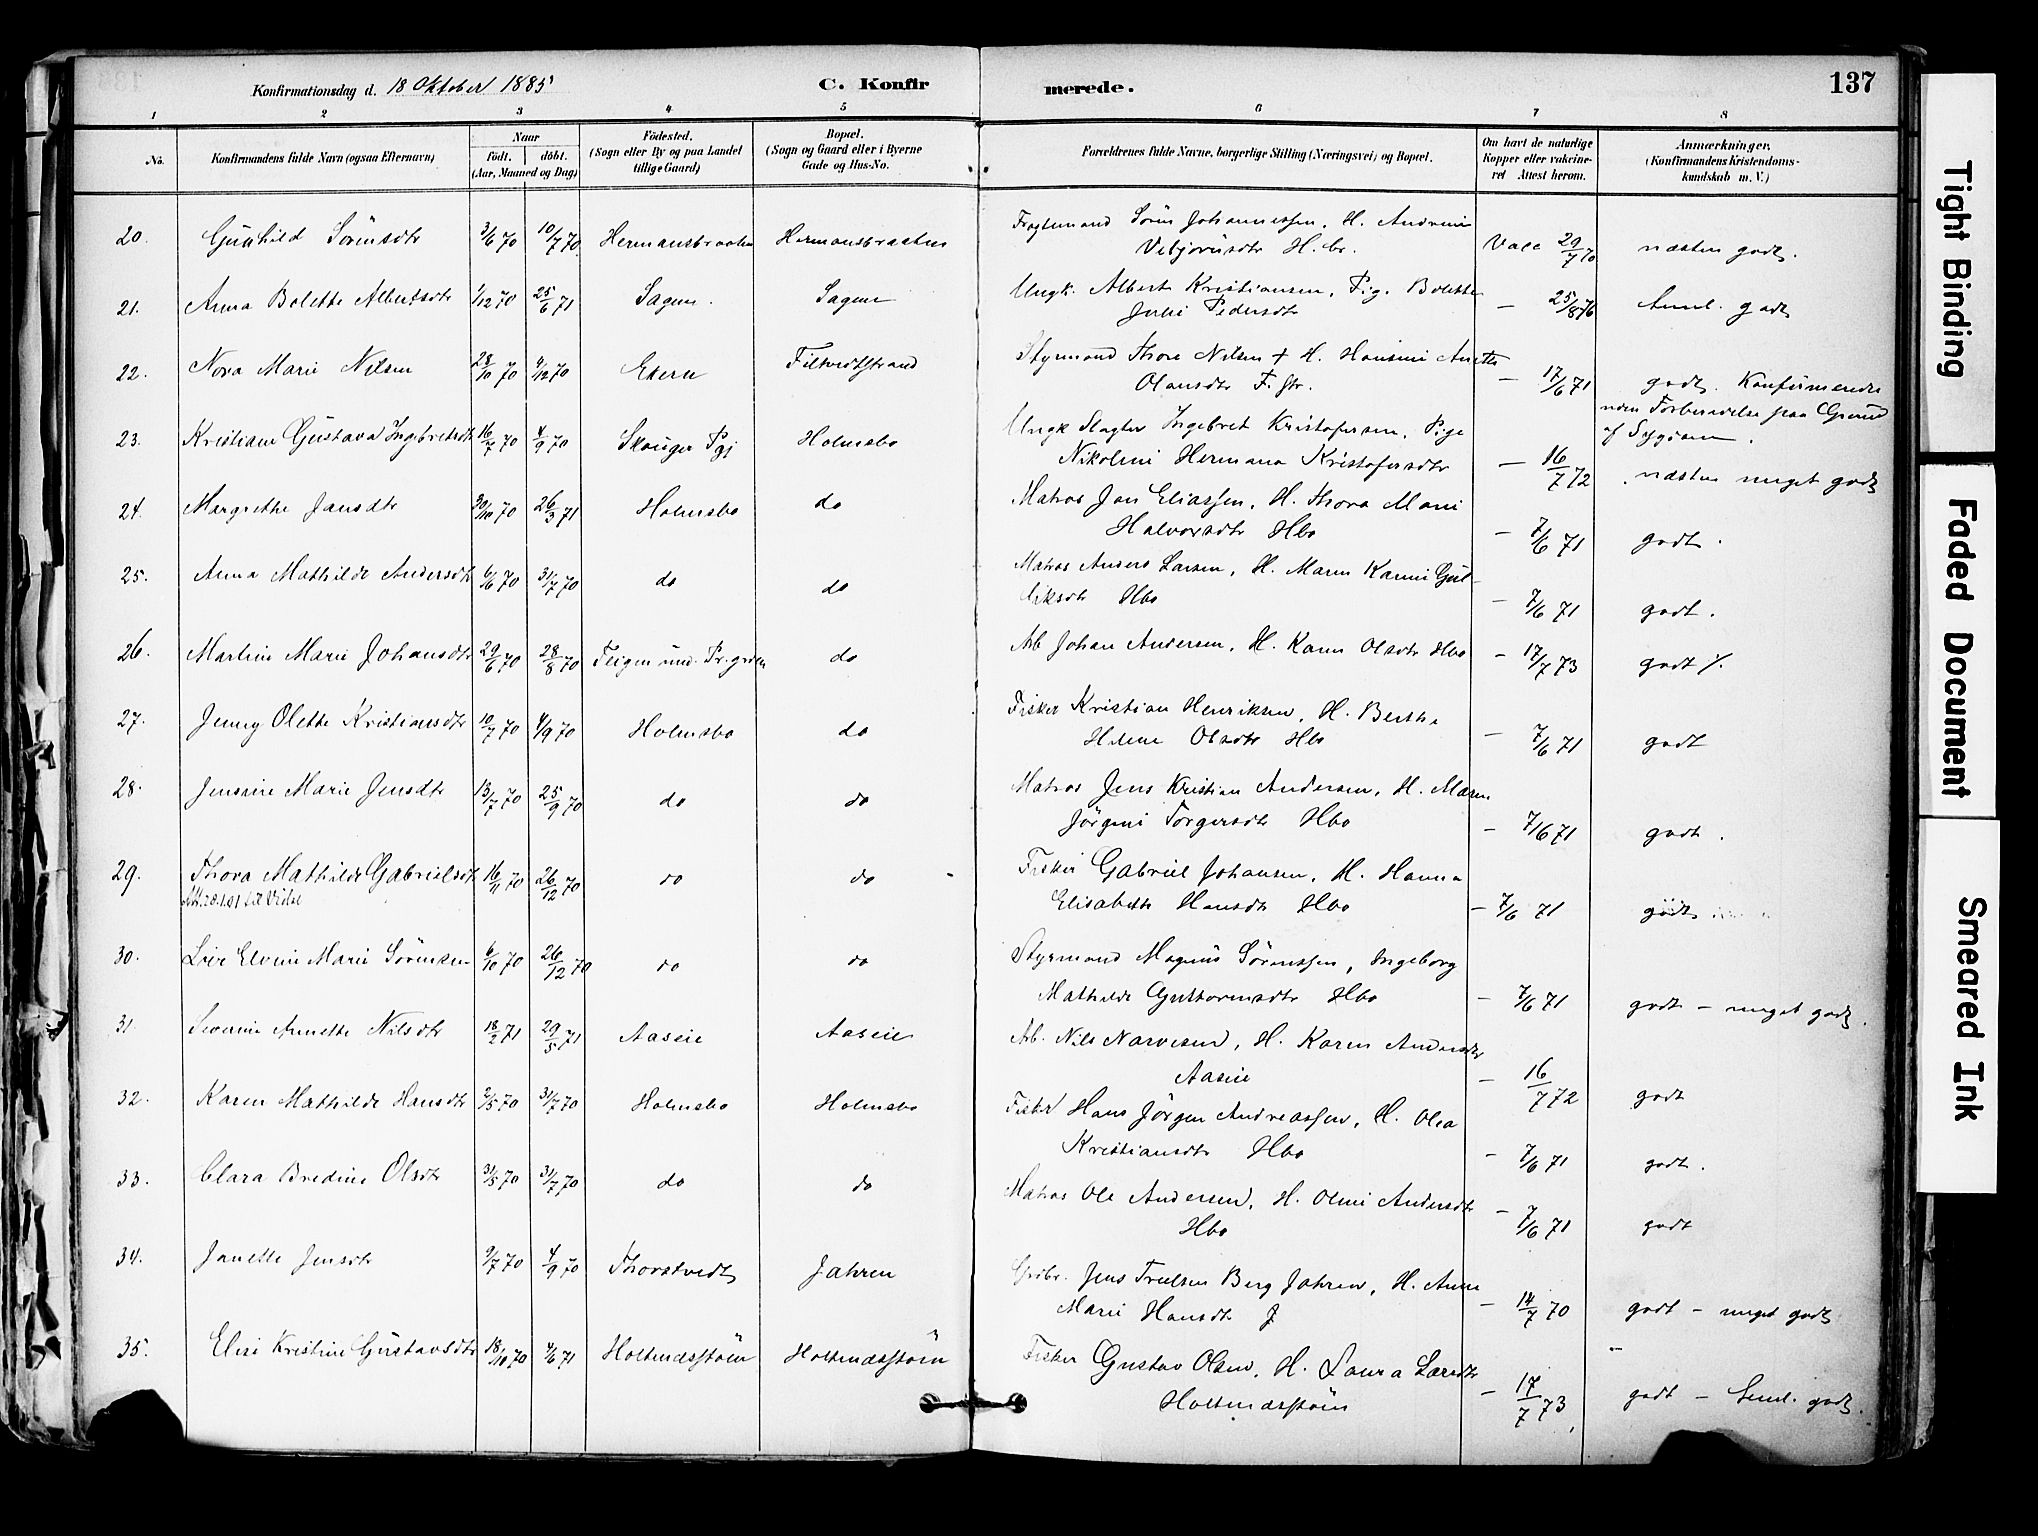 Konfirmationsdag d. 18 Oktober 1885
C. Konfirmerede.
137
1 2 3 4 5 6 7 8
No.
Konfirmandens fulde Navn (ogsaa Efternavn)
Naar
født. døbt.
(Aar, Maaned og Dag)
Födested.
(Sogn eller By og paa Landet
tillige Gaard)
Bopæl.
(Sogn og Gaard eller i Byerne
Gade og Hus-No.
Forældrenes fulde Navne, borgerlige Stilling (Næringsvei) og Bopæl.
Om havt de naturlige
Kopper eller vakcine-
ret Attest herom.
Anmærkninger.
(Konfirmandens Kristendoms-
kundskab m. V.)
20. Gunhild Sörensdtr 3/6 70 10/7 70 Hermansbraaten Hermansbraaten
Sören Johannessen, H. Andrine
H.br. Vacc 29/7 70 næsten godt.
21. Anna Bolette Albertsdtr 1/12 70 25/6 71 Sagene. Sagene
Ungk. Albert Kristiansen, Pig. Bolette
Julie Pedersdtr — 25/8 76 Temml. godt
22. Nora Marie Nilsen 28/10 70 4/12 70 Ekern Filtvedtstrand
Styrmand Thore Nilsen + H. Hansine Anette
Olausdtr F.str. — 17/6 71 godt. Konfirmeredes
uden Forberedelse paa Grund
af Sygdom.
23. Kristiane Gustava Ingebretsdtr 16/7 70 4/9 70 Skouger Pgj Holmsbo
Ungk Slagter Ingebret Kristofersen, Pige
Nikoline Hermana Kristofersdtr — 16/7 72 næsten meget godt
24. Margrethe Jansdtr 30/10 70 26/3 71 Holmsbo do
Matros Jan Eliassen, H. Thora Marie
Halvorsdtr Hbo — 7/6 71 godt.
25. Anna Mathilde Andersdtr 6/6 70 31/7 70 do do
Matros Anders Larsen, H. Maren Karine Gul-
liksdtr Hbo — 7/6 71 godt.
26. Martine Marie Johansdtr 29/6 70 28/8 70 do
Arb Johan Andersen, H. Karen Olsdtr Hbo — 17/7 73 godt
27. Jenny Olette Kristiansdtr 10/7 70 4/9 70 Holmsbo do
Fisker Kristian Henriksen, H. Berthe
Helene Olsdtr Hbo — 7/6 71 godt
28. Jensine Marie Jensdtr 13/7 70 25/9 70 do do
Matros Jens Kristian Andersen, H. Maren
Jörgine Torgersdtr Hbo — 7/6 71 godt.
29. Thora Mathilde Gabrielsdtr 16/11 70 26/12 70 do do
Fisker Gabriel Johansen, H. Hanna
Elisabeth Hansdtr Hbo — 7/6 71 godt
30. Elvine Marie Sörensen 6/10 70 26/12 70 do do
Styrmand Magnus Sörenssen, Ingeborg
Mathilde Guttormsdtr Hbo — 7/6 71 godt — meget godt.
31. Severine Annette Nilsdtr 18/2 71 29/5 71 Aaseie Aaseie
Arb. Nils Narvesen, H. Karen Andersdtr
Aaseie — 16/7 72 godt
32. Karen Mathilde Hansdtr 2/5 70 31/7 70 Holmsbo Holmsbo
Fisker Hans Jörgen Andreassen, H. Olea
Kristiansdtr Hbo — 7/6 71 godt.
33. Clara Bredine Olsdtr 31/5 70 31/7 70 do do
Matros Ole Andersen, H. Oline Andersdtr
Hbo — 7/6 71 godt
34. Janette Jensdtr 9/7 70 4/9 70 Thorstvedt Jahren
Jens Truelsen Berg Jahren, H. Anne
Marie Hansdtr J — 14/7 70 godt — meget godt
35. Elise Kristine Gustavsdtr 18/10 70 4/6 71 Holtnæsstöen Holtnæsstöen
Fisker Gustav Olsen, H. Laura Larsdtr
Holtnæsstöen — 17/7 73 godt — Teml. godt.
Tight Binding
Faded Document
Smeared Ink